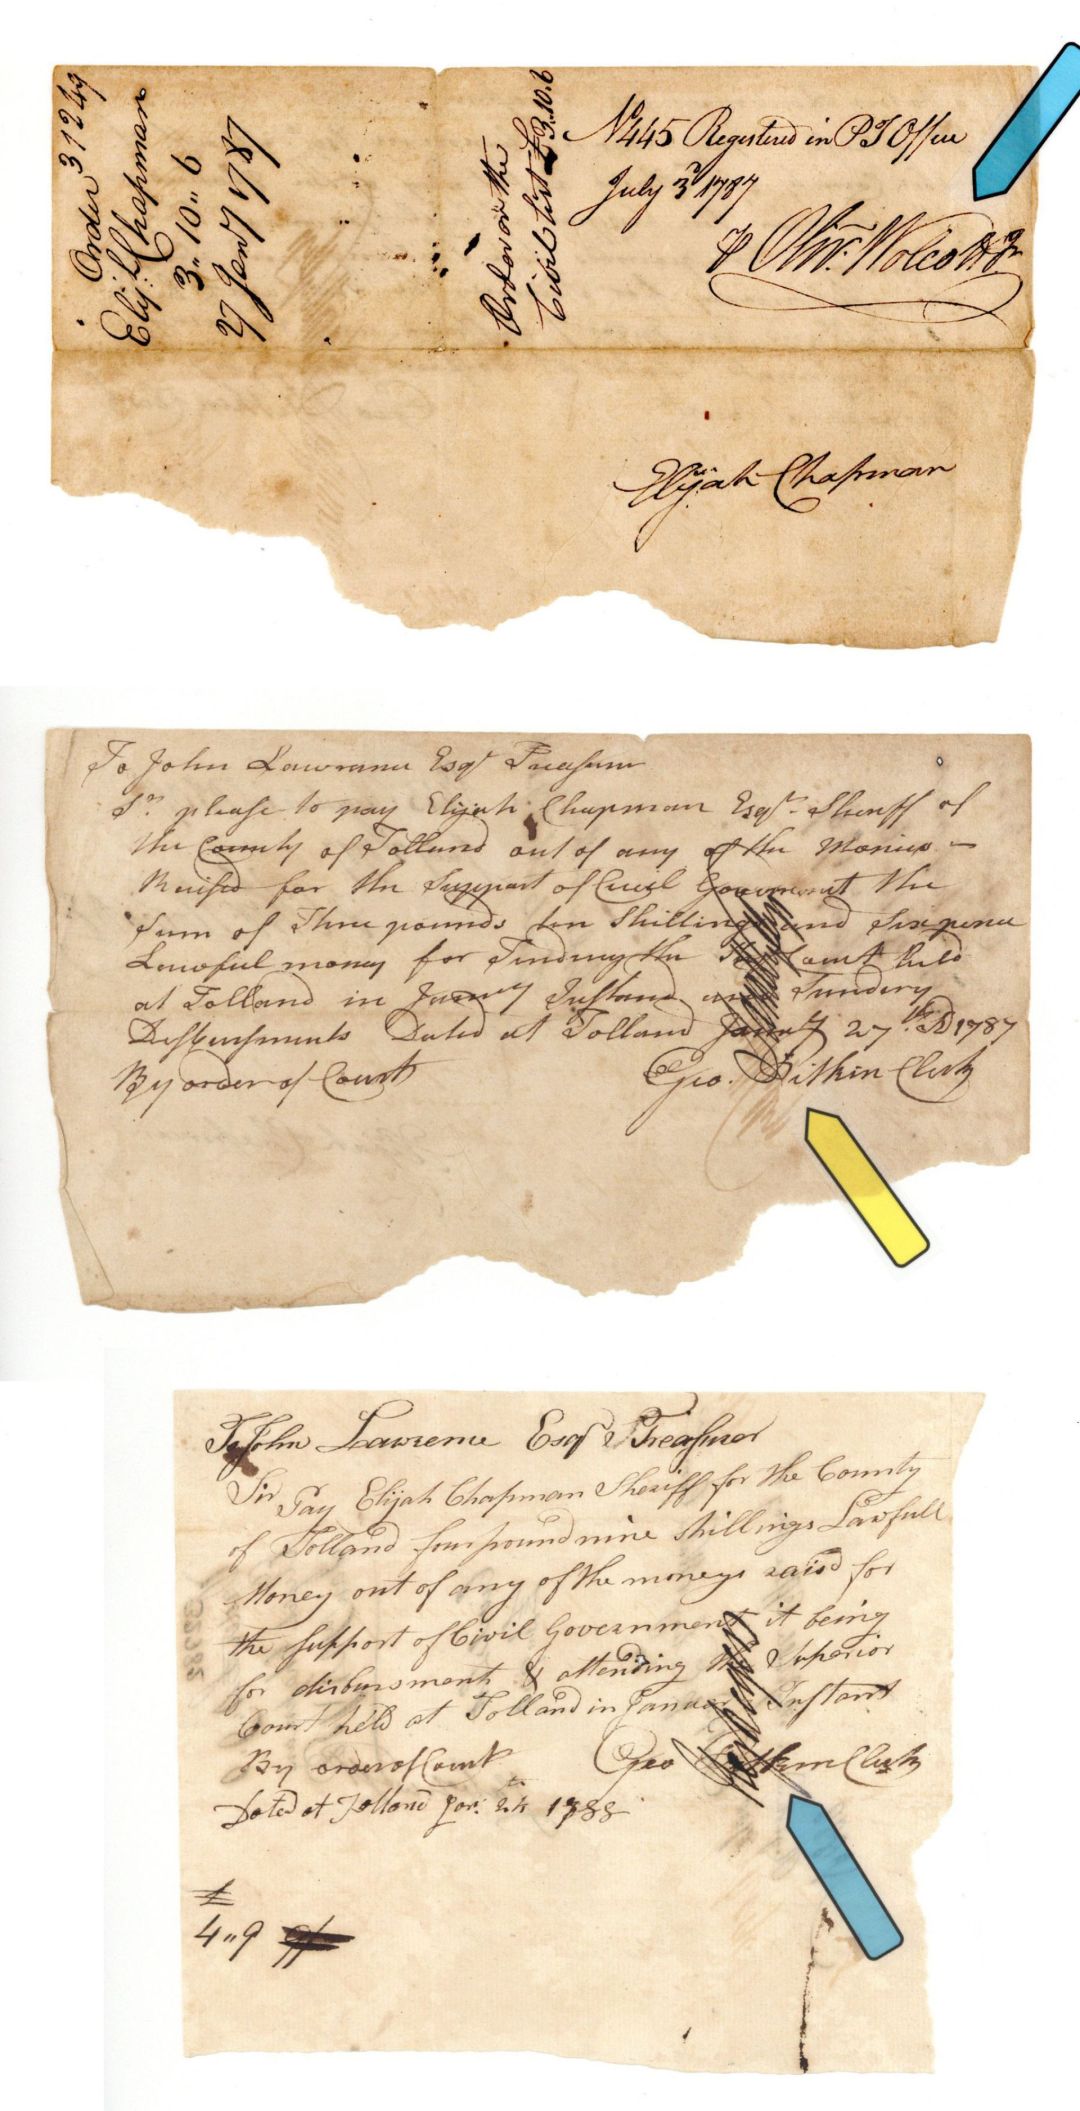 Order 31249
Elij. Chapman
3.. 10.. 6
27 Jany 1787
Order on the
Civil List £3..10..6
No 445 Registered in P T Office
July 3d 1787
Olivr. Wolcott Jr
Elijah Chapman
To John Lawrance Esqr Treasurer
Sr. please to pay Elijah Chapman Esqr. Sheriff of
the County of Tolland out of any of the Monies
Raised for the Support of Civil Government the
Sum of Three pounds ten Shillings and Sixpence
Lawful money for Tending the Court held
at Tolland in Instand and Sundery
Disbursments Dated at Tolland Januay 27th AD 1787
By order of Court Geo. Pitkin Clerk
To John Lawrence Esqr Treasurer
Sir Pay Elijah Chapman Sheriff for the County
of Tolland four pound nine shillings Lawfull
Money out of any of the moneys raisd for
the support of Civil Government it being
for disbursments & attending the Superior
Court held at Tolland in Januar Instant
By order of Court Geo Pitkin Clerk
Dated at Tolland Jan. 24th 1788
£
4..9